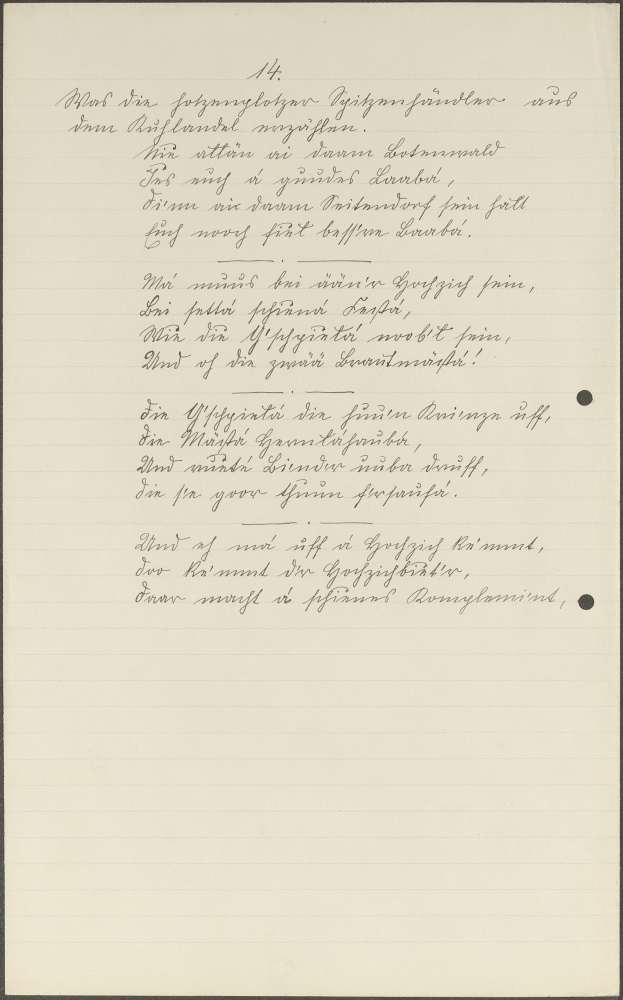 14.
Was die hotzenplotzer Spitzenhändler aus
dem Kuhlandel erzählen.
Nie allän ai daam Botenwald
Jes euch á guudes Laabá,
Di'nn ai daam Seitendorf sein halt
Euch nooch fiel bess're Baabá.
Má muus bei ään'r Hochzich sein,
Bei settá schiená Festá,
Wie die G'schpielá noob'l sein,
Und oh die zwää Brautmästá!
Die G'schpielá die huu'n Kri'nze uff,
Die Mästá Hernláhaubá,
Und rueté Bi'nd'r uuba druff,
Die sie goor thuun f'rsaufá.
Und eh má uff á Hochzich ké'mmt,
Doo ké'mmt d'r Hochzichbiet'r,
Daar macht á schienes Komplemi'nt,